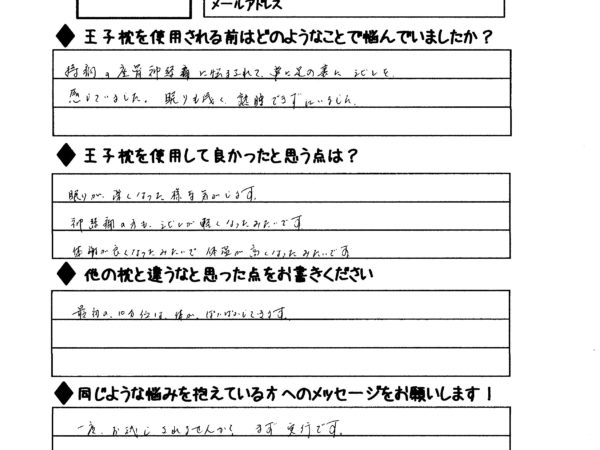 メールアドレス
◆王子枕を使用される前はどのようなことで悩んでいましたか？
持病の座骨神経痛に悩まされて、常に足の裏に しびれを
感じていました。 眠りも浅く、熟睡できずにいました
◆王子枕を使用して良かったと思う点は？
眠りが、深くなった様な気がします。
神経痛の方も、しびれが軽くなったみたいです
体調が良くなったみたいで 体温が高くなったみたいです
◆他の枕と違うなと思った点をお書きください
最初の、10分位は、体が、ぽかぽかしてきます。
◆同じような悩みを抱えている方へのメッセージをお願いします！
一度、お試しされませんか まず 実行です。